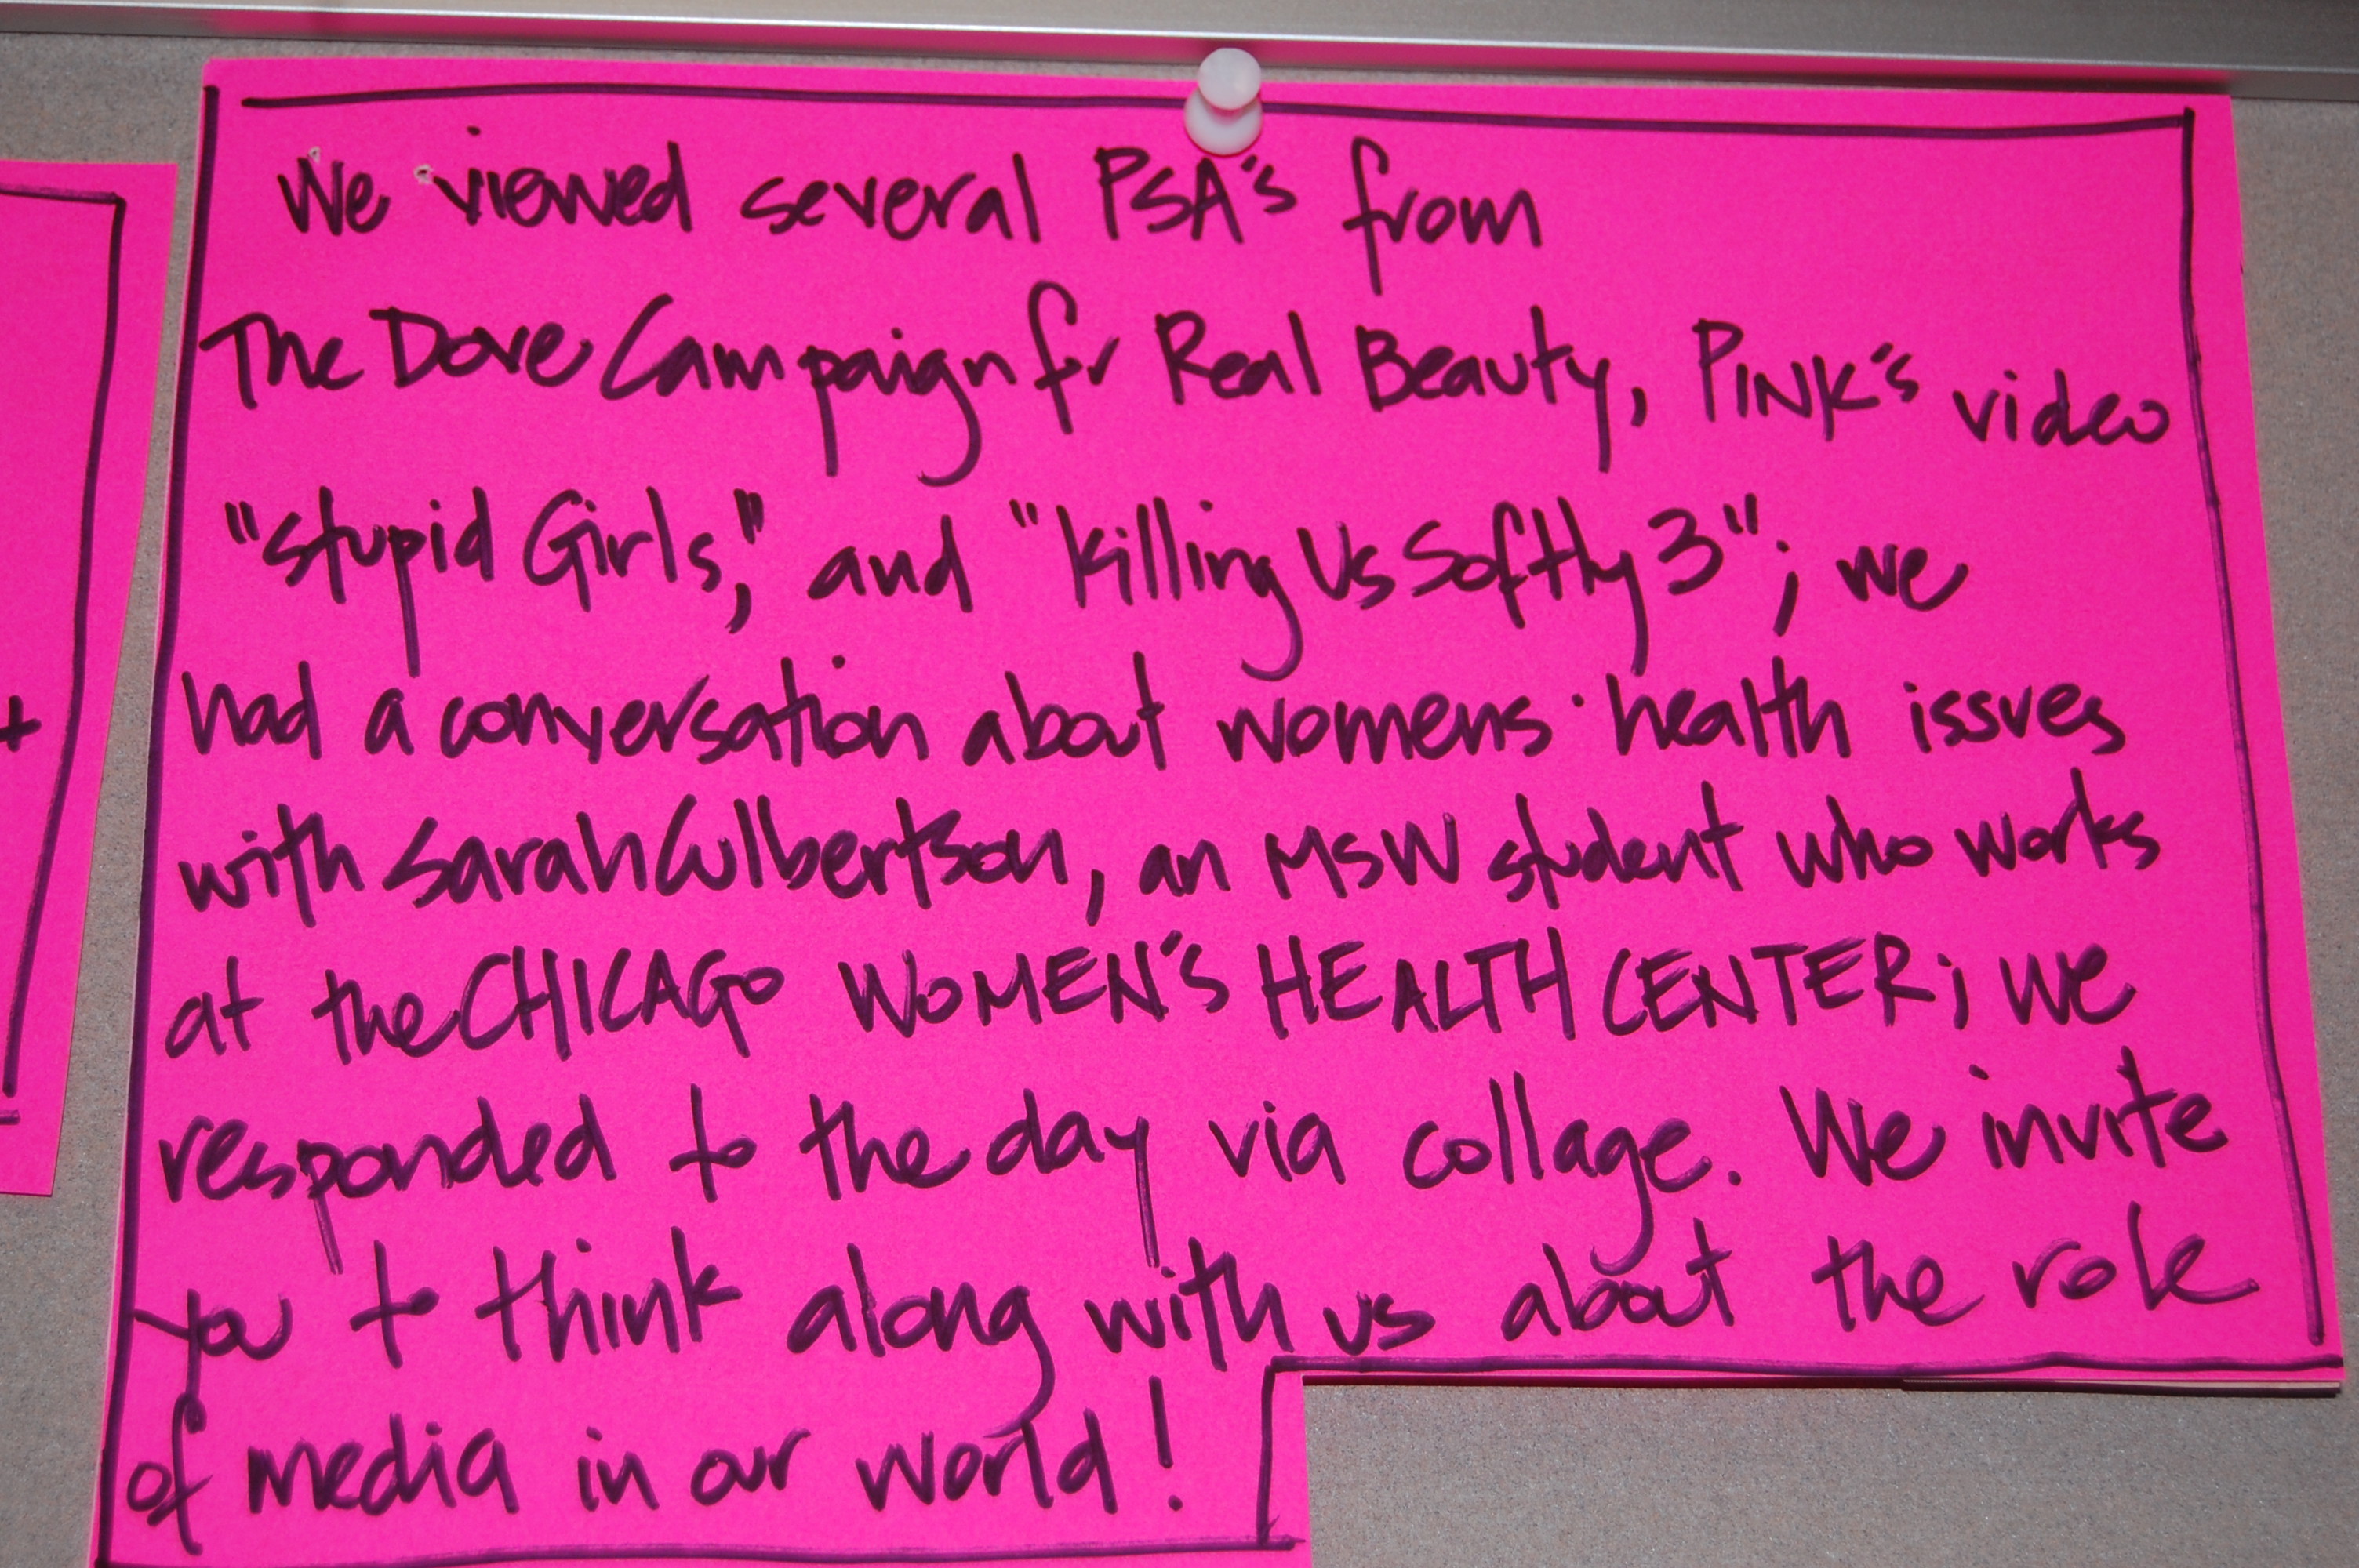 We viewed several PSA's from
The Dove Campaign for Real Beauty, PINK's video
"Stupid Girls," and "Killing Us Softly 3"; we
had a conversation about womens health issues
with Sarah Culbertson, an MSW student who works
at the CHICAGO WOMEN'S HEALTH CENTER; we
responded to the day via collage. We invite
you to think along with us about the role
of media in our world!